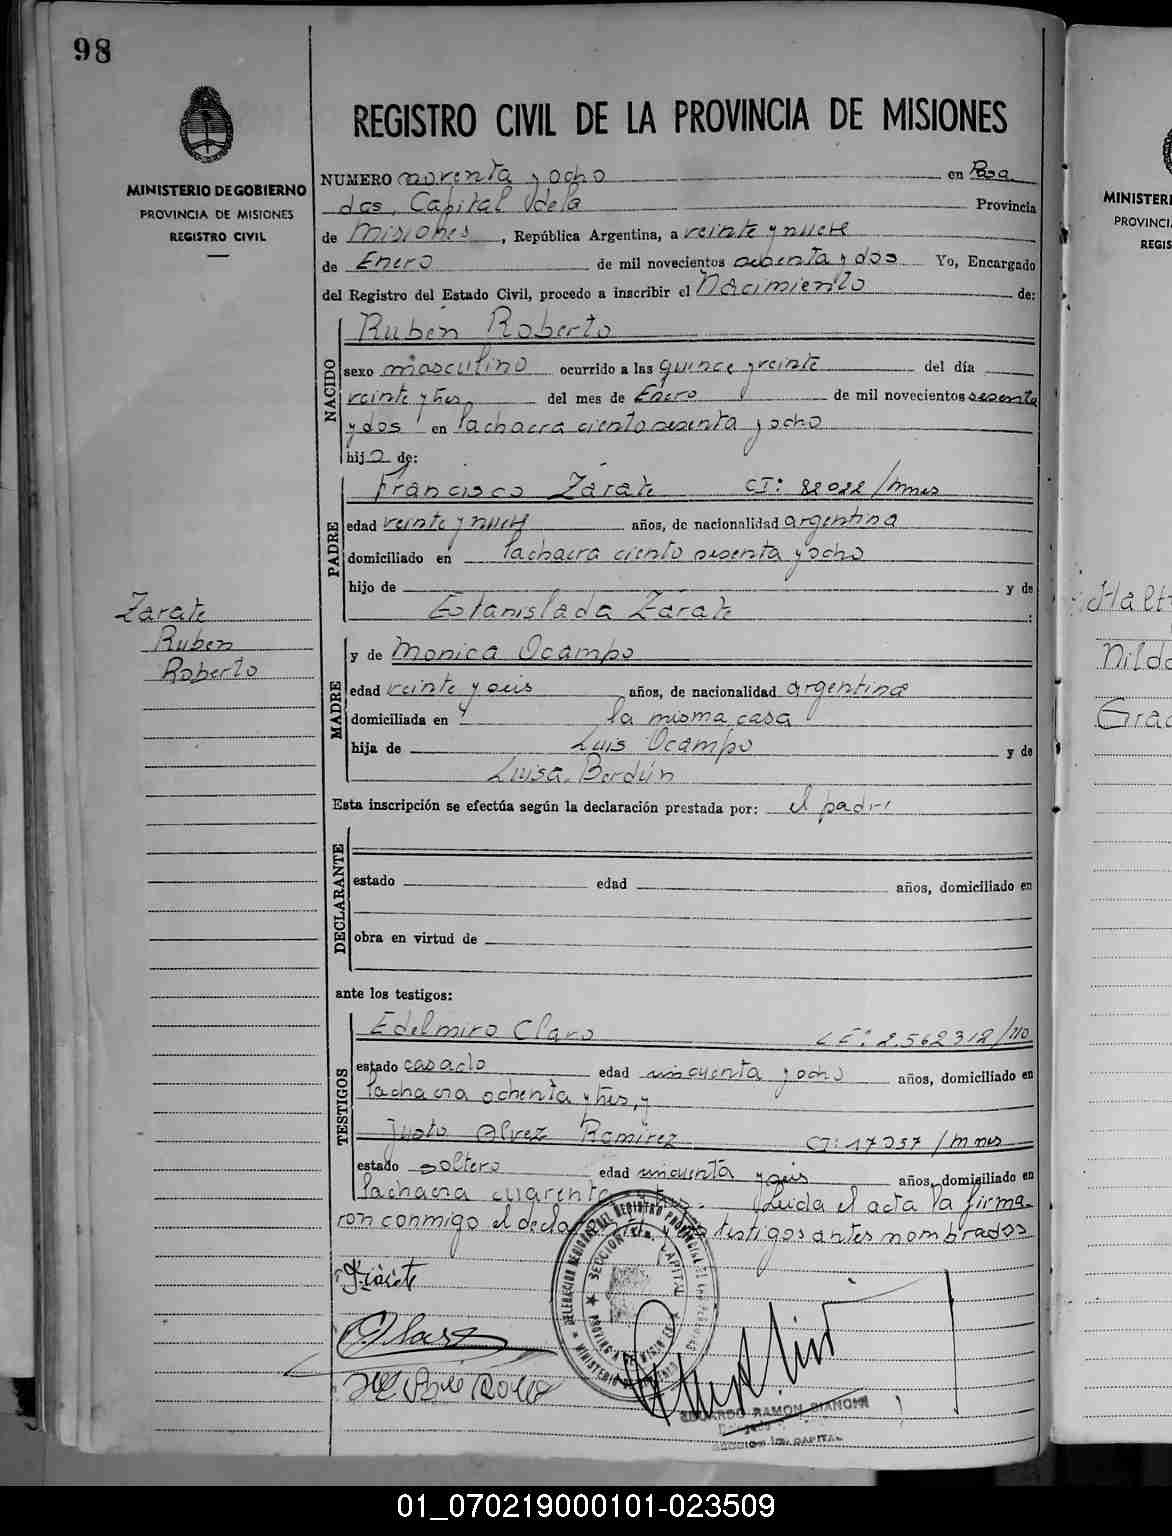 98
MINISTERIO DE GOBIERNO
PROVINCIA DE MISIONES
REGISTRO CIVIL
REGISTRO CIVIL DE LA PROVINCIA DE MISIONES
NUMERO noventa y ocho en Posa
das, Capital de la Provincia
de Misiones, República Argentina, a veinte y nueve
de Enero de mil novecientos sesenta y dos Yo, Encargado
del Registro del Estado Civil, procedo a inscribir el Nacimiento de:
NACIDO
Ruben Roberto
sexo masculino ocurrido a las quince y veinte del día
veinte y tres, del mes de Enero de mil novecientos sesenta
y dos en la chacra ciento sesenta y ocho
hijo de:
PADRE
Francisco Zárate CI: 82022/Mnes
edad veinte y nueve años, de nacionalidad argentina
domiciliado en la chacra ciento sesenta y ocho
hijo de y de
Estanislada Zárate :
Zarate
Ruben
Roberto
MADRE
y de Monica Ocampo
edad veinte y seis años, de nacionalidad argentina
domiciliada en la misma casa
hija de Luis Ocampo y de
Luisa Bordún
Esta inscripción se efectúa según la declaración prestada por: el padre
DECLARANTE
estado edad años, domiciliado en
obra en virtud de
ante los testigos:
TESTIGOS
Edelmiro Claro LE: 2.562312/
estado casado edad cincuenta y ocho años, domiciliado en
la chacra ochenta y tres, y
Justo Alvez Ramirez CI: 17057/Mnes
estado soltero edad cincuenta y seis años, domiciliado en
la chacra cuarenta Leida el acta la firma-
ron conmigo el testigos antes nombrados
Zárate
EDUARDO RAMON BIANCHI
SECCION 1ra. CAPITAL
MINISTERI
PROVINCI
REGIS
Nilda
Grac
01_070219000101-023509